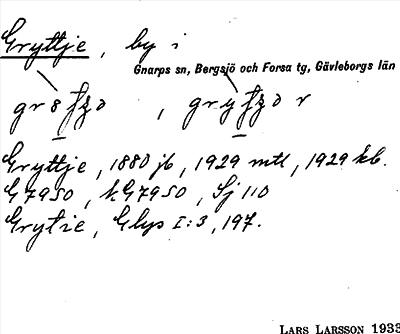 Gryttje, by i
Gnarps sn, Bergsjö och Forsa tg, Gävleborgs län
Gryttje, 1880 jb, 1929 mtl, 1929 kb.
G 7950, h. G 7950, Sj 110
Grytie, Glys I:3, 197.
LARS LARSSON 1933